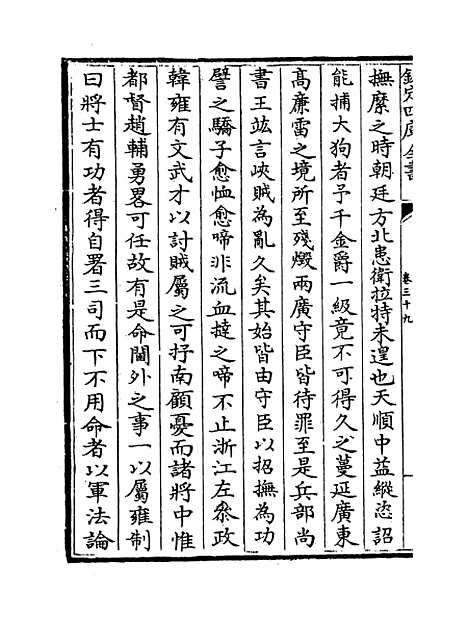 欽定四庫全書
卷三十九
撫縻之時朝廷方北患衛拉特未遑也天順中益縱恣詔
能捕大狗者予千金爵一級竟不可得久之蔓延廣東
髙廉雷之境所至殘燬兩廣守臣皆待罪至是兵部尚
書王竑言峽賊為亂久矣其始皆由守臣以招撫為功
譬之驕子愈恤愈啼非流血撻之啼不止浙江左叅政
韓雍有文武才以討賊屬之可抒南顧憂而諸將中惟
都督趙輔勇畧可任故有是命閫外之事一以屬雍制
曰將士有功者得自署三司而下不用命者以軍法論